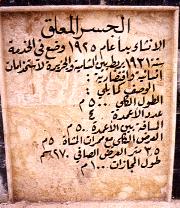 الجسر المعلق
الانشاء بدأ عام ١٩٢٥ وضع في الخدمة
سنة ١٩٣١ يربط بين الشامية والجزيرة لاستخدامات
انسانية واقتصادية :
الوصف كما يلي :
الطول الكلي ٥٠٠ م
عدد الاعمدة ٤
المسافة بين الاعمدة ٥٠٠ م
العرض الكلي مع ممرات المشاة ٥ م
العرض الصافي
طول المجازات ١٠٠ م